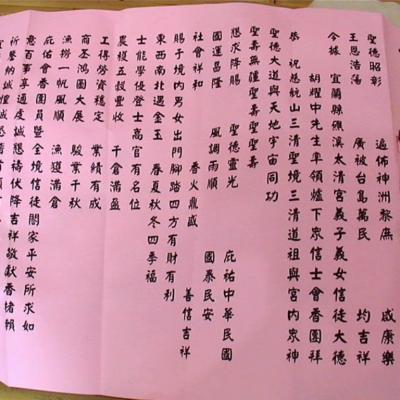 聖德昭彰　遍佈神洲黎庶　咸康樂
王恩浩蕩　廣被台島萬民　均吉祥
今據　宜蘭縣礁溪太清宮義子義女信徒大德
胡耀中先生率領爐下眾信士會香團祥
恭　祝慈航山三清聖境三清道祖與宮內眾神
聖德大道與天地宇宙同功
聖壽無疆聖壽萬壽
懇求降賜　聖德靈光　庇祐中華民國
國運昌隆　風調雨順　國泰民安
社會祥和　香火鼎盛　善信吉祥
賜于境內男女出門腳踏四方有財有利
東西南北遇金玉　春夏秋冬四季福
士能學優登士高官有名位
農稷五穀豐收　千倉滿盈
工得勞資穩定　業績有成
商丕鴻圖大展　駿業千秋
漁撈一帆風順　漁獲滿倉
庇佑會香團員暨全境信徒閤家平安所求如
意百事亨通虔誠慈禱伏降吉祥敬獻香楮